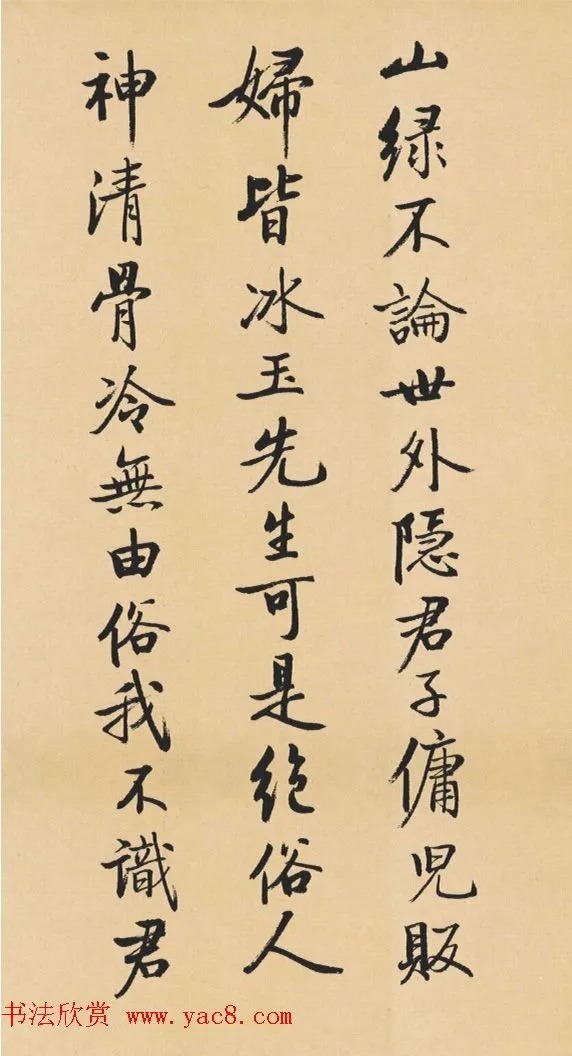 山緑不論世外隱君子傭児販
婦皆冰玉先生可是絶俗人
神清骨冷無由俗我不識君
书法欣赏 www.yac8.com